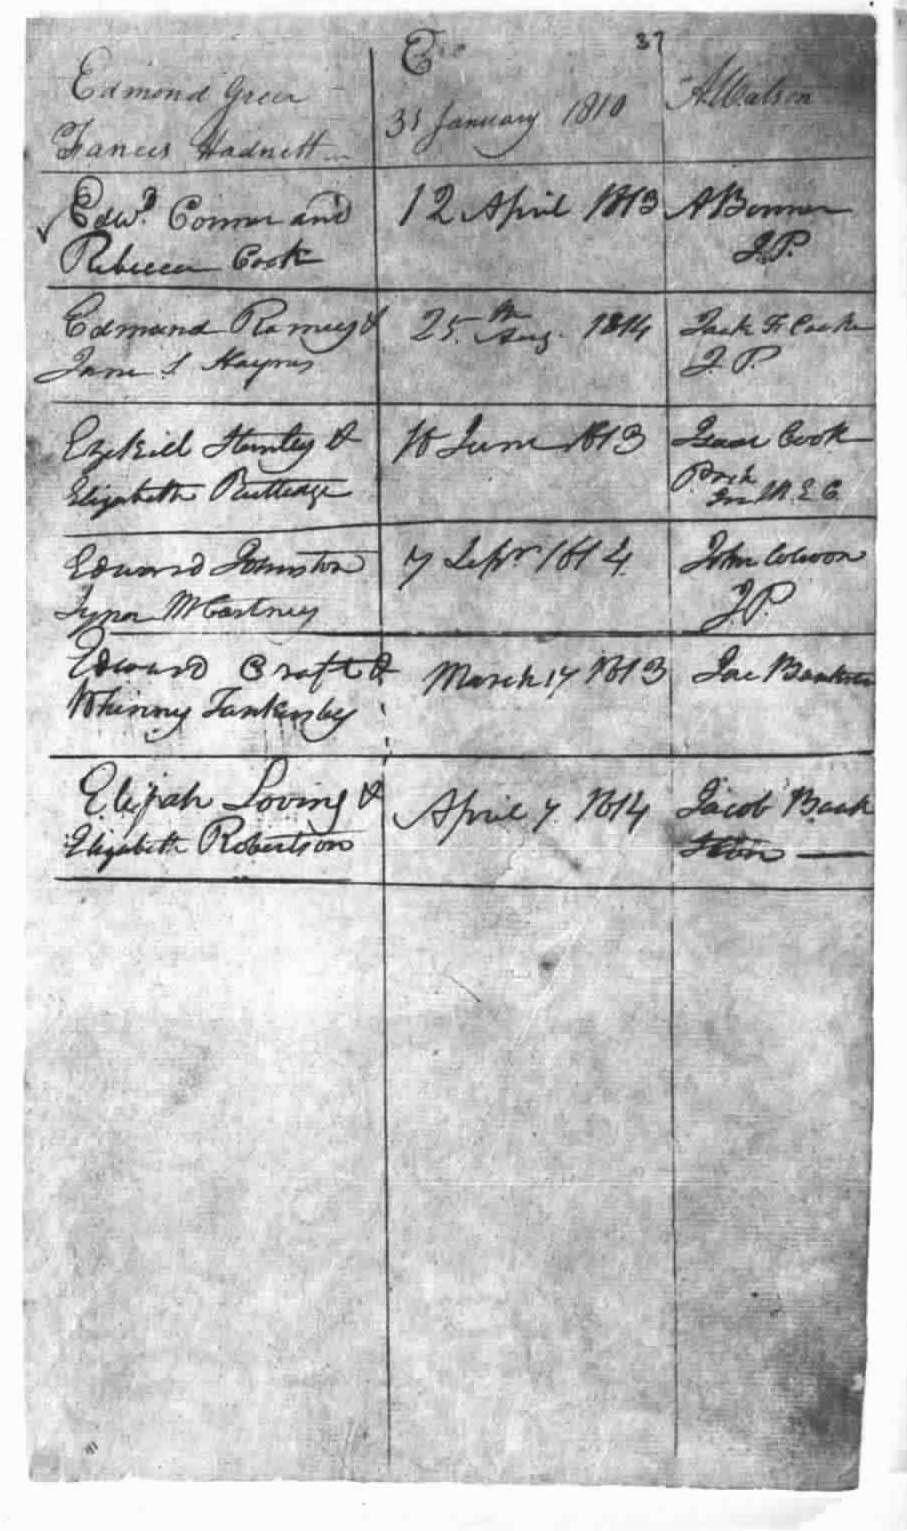 E 37
Edmond Greer
Fances Hadnett
31 January 1810
A Watson
Edwd. Conner and
Rebecca Cook
12 April 1813
A Bonner
J.P.
Edmund Ramey &
Jane S Haynes
25th Aug. 1814
Zack F Cocke
J.P.
Ezekiell Stanley &
Elizabeth Rutledge
16 June 1813
Isaac Cook
M. E. C.
Edward Johnston
McCartney
7 Sepr. 1814
John Colwoon
J.P.
Edward Craft &
Whinny Tankersley
March 17 1813
Jac Bankston
Elijah Loving &
Elizabeth Robertson
April 7 1814
Jacob Bank
ston